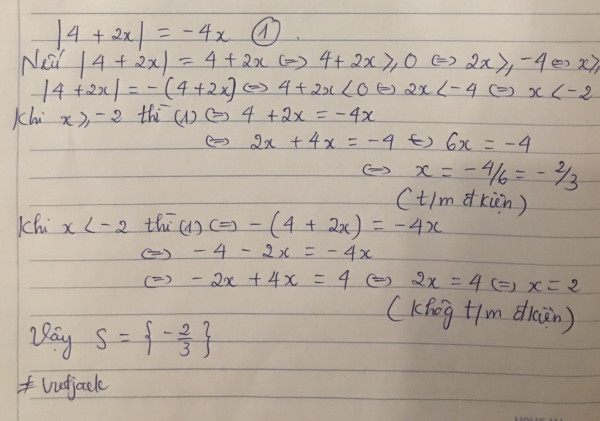 |4 + 2x| = -4x ①.
Nếu |4 + 2x| = 4 + 2x <=> 4 + 2x ≥, 0 <=> 2x ≥, -4 <=> x ≥,
|4 + 2x| = -(4+2x) <=> 4 + 2x < 0 <=> 2x < -4 <=> x < -2
Khi x ≥, -2 thì (1) <=> 4 + 2x = -4x
<=> 2x + 4x = -4 <=> 6x = -4
<=> x = -4/6 = -2/3
(t/m đ kiện)
Khi x < -2 thì (1) <=> -(4 + 2x) = -4x
<=> -4 - 2x = -4x
<=> -2x + 4x = 4 <=> 2x = 4 <=> x = 2
(Khôg t/m đ kiện)
Vậy S = {-2/3}